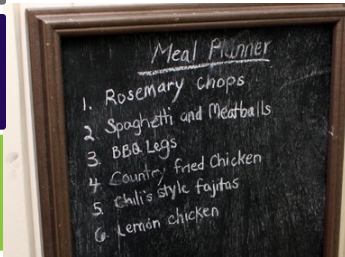 Meal Planner
1. Rosemary Chops
2 Spaghetti and Meatballs
3. BBQ Legs
4. Country fried Chicken
5. Chili's style fajitas
6. Lemon chicken